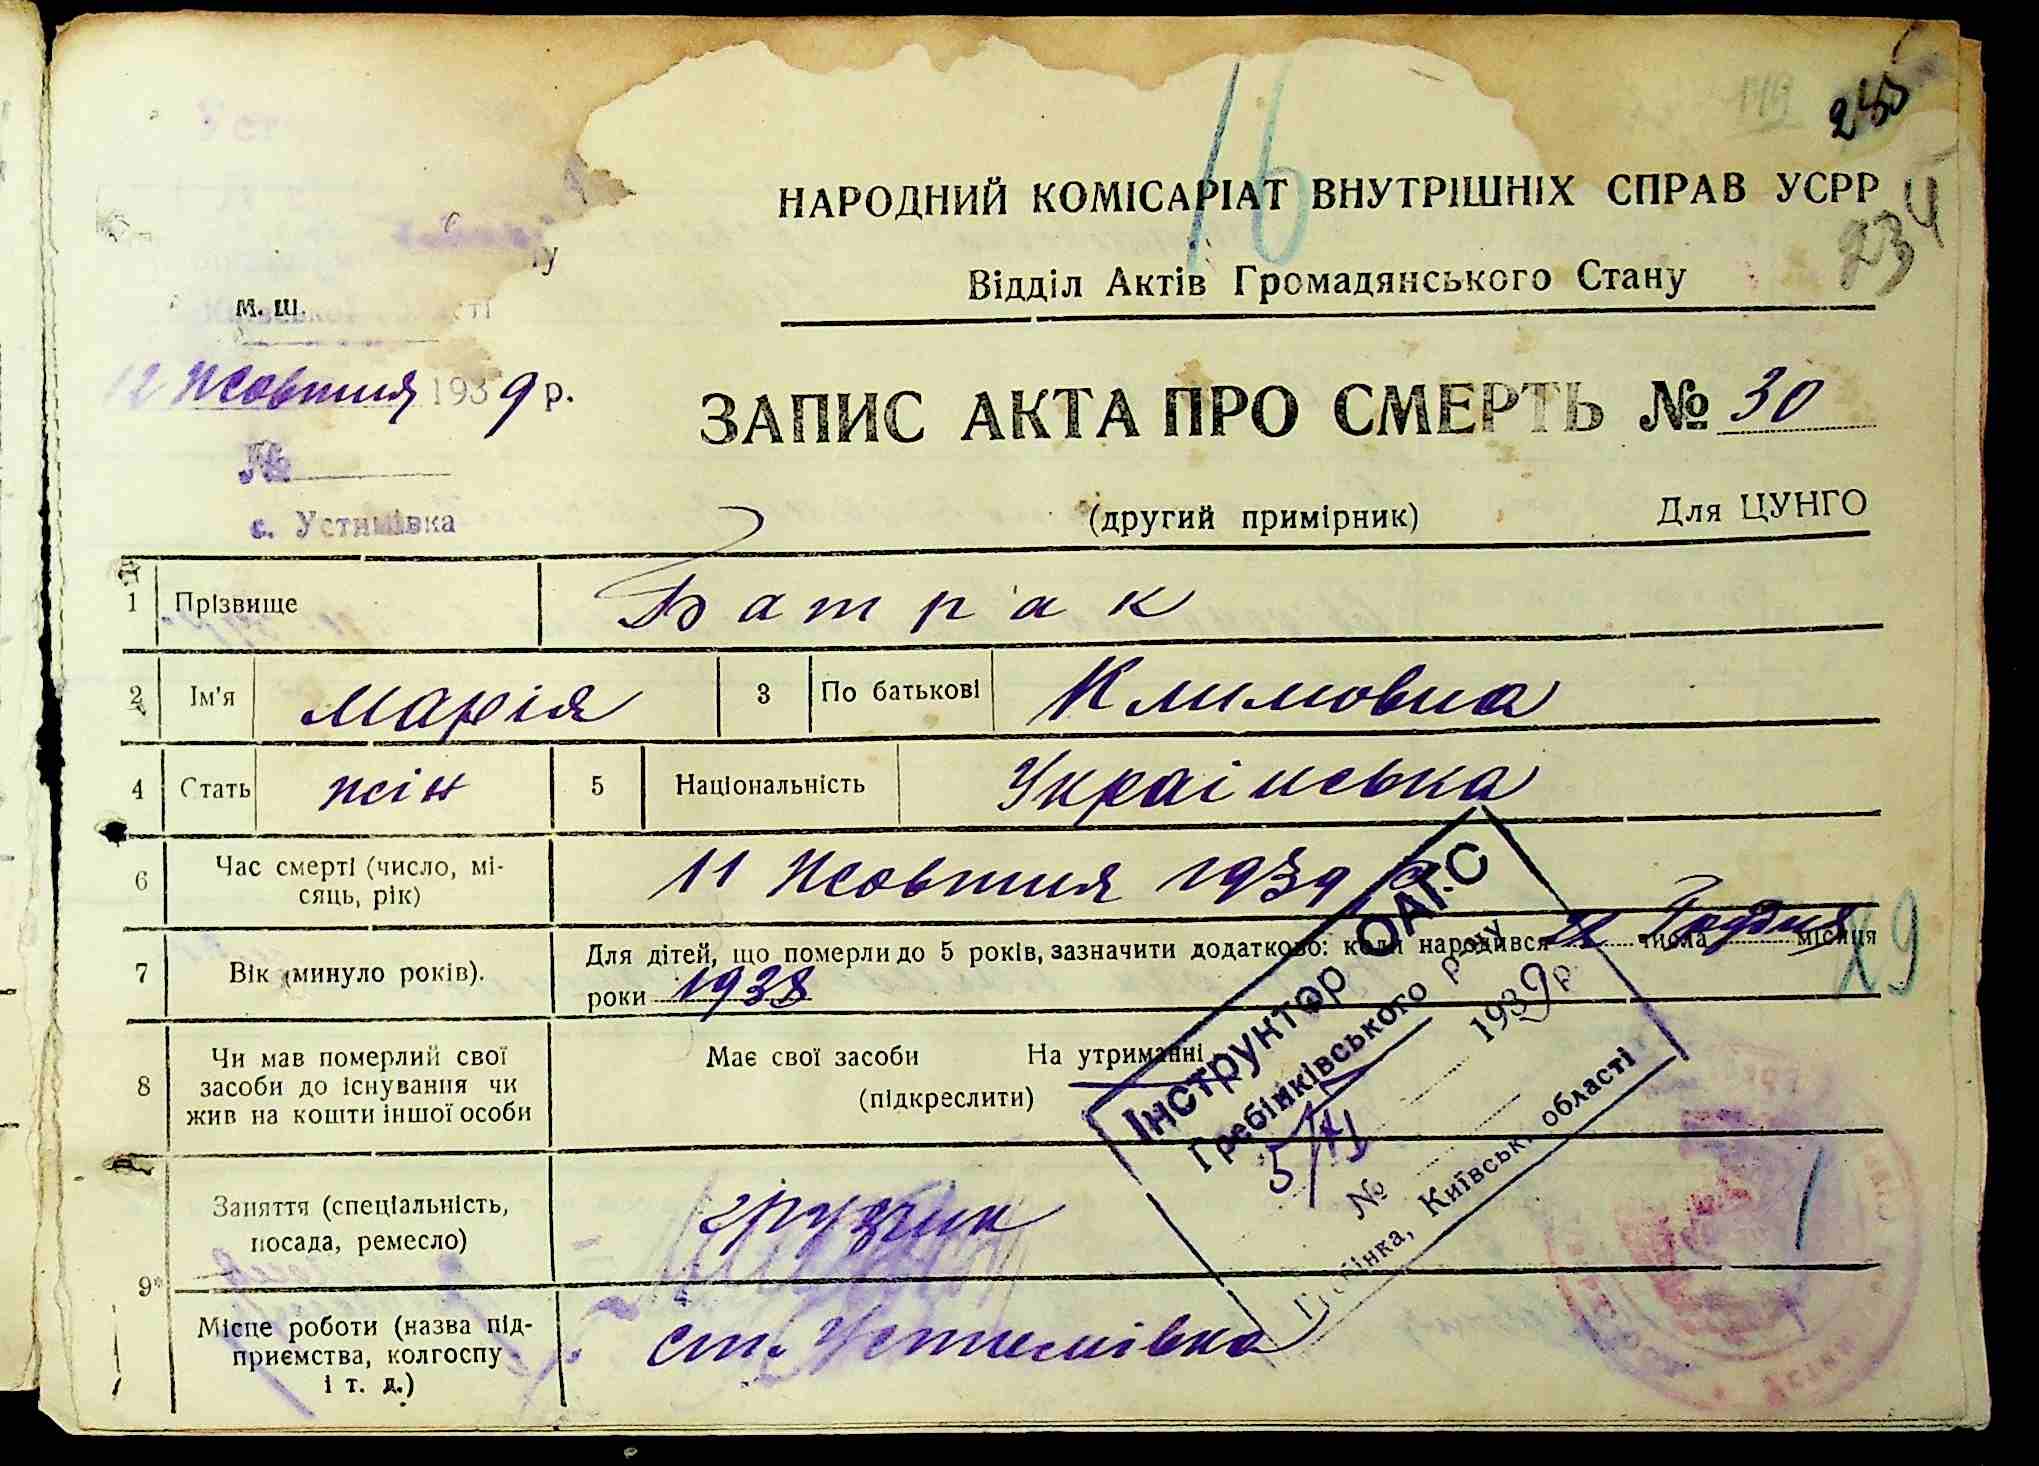 16
149
235
234
НАРОДНИЙ КОМІСАРІАТ ВНУТРІШНІХ СПРАВ УСРР
Відділ Актів Громадянського Стану
м. ш.
12 Жовтня 1939 р.
ЗАПИС АКТА ПРО СМЕРТЬ № 30
№
с. Устимівка
(другий примірник) Для ЦУНГО
1 Прізвище Батрак
2 Ім'я Марія 3 По батькові Климовна
4 Стать жін 5 Національність Українська
6 Час смерті (число, мі-
сяць, рік) 11 Жовтня 1939 р
7 Вік (минуло років). Для дітей, що померли до 5 років, зазначити додатково: коли народився числа місяця
роки 1938
Х9
8 Чи мав померлий свої
засоби до існування чи
жив на кошти іншої особи
Має свої засоби На утриманні
(підкреслити)
9 Заняття (спеціальність,
посада, ремесло) грузчик
Місце роботи (назва під-
приємства, колгоспу
і т. д.) ст. Устемівка
Інструктор ОАГС
Гребінківського р-ну
5/XI 1939 р
№
Гребінка, Київськ. області